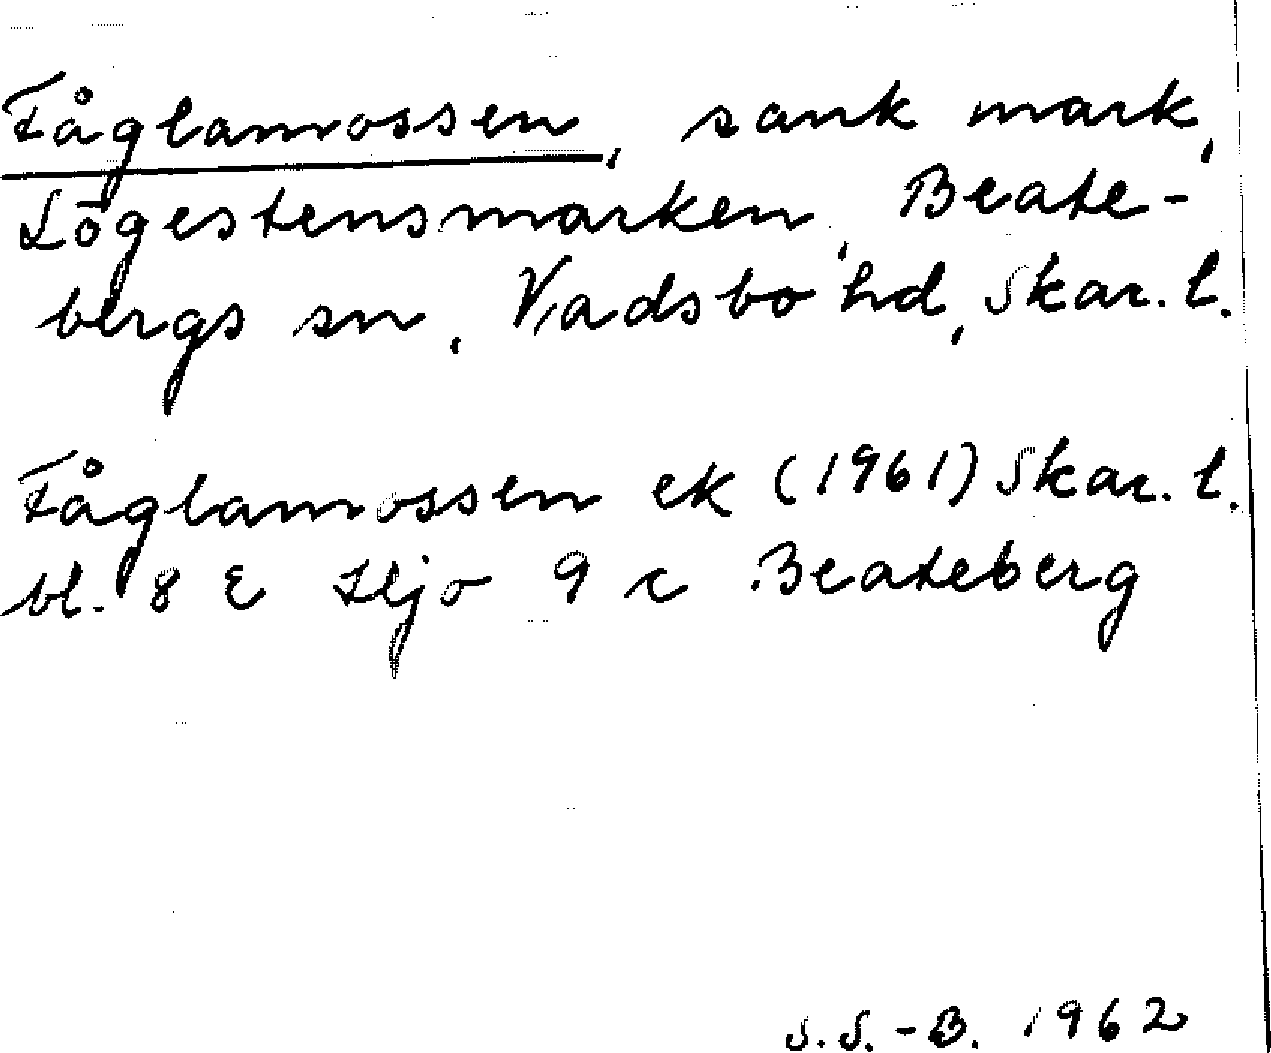 Fåglamossen, sank mark,
Lögestensmarken, Beate-
bergs sn, Vadsbo hd, Skar. l.
Fåglamossen ek (1961) Skar. l.
bl. 8 E Hjo 9 c Beateberg
S. S. - B. 1962